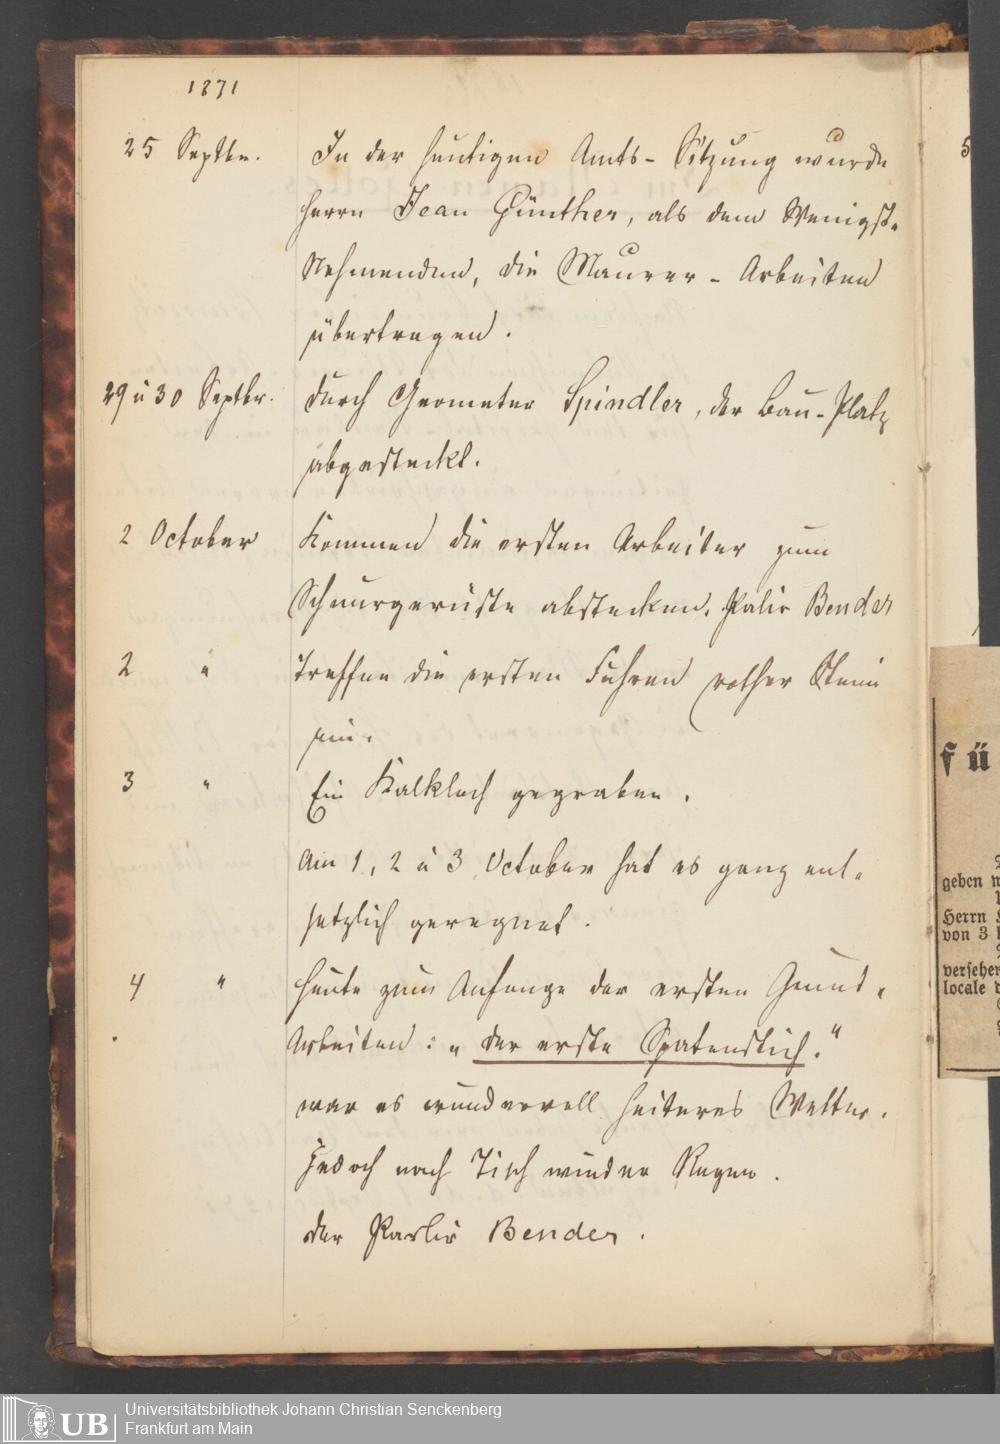 1871
25 Septbr. In der heutigen Amts-Sitzung wurde
Herrn Jean Günther, als dem Wenigst-
Nehmenden, die Maurer-Arbeiten
übertragen.
29 u 30 Septbr. durch Geometer Spindler, der Bau-Platz
abgesteckt.
2 October Kommen die ersten Arbeiter zum
Schnurgerüste abstecken. Palir Bender
2 " Treffen die ersten Fuhren rother Steine
ein.
3 " Ein Kalkloch gegraben.
Am 1, 2 u 3 October hat es ganz ent-
setzlich geregnet.
4 " Heute zum Anfange der ersten Grund-
Arbeiten: „der erste Spatenstich."
war es wundervoll heiteres Wetter.
Jedoch nach Tisch wieder Regen.
der Parlir Bender.
5
fü
geben
Herrn
von 3
versehen
locale
UB
Universitätsbibliothek Johann Christian Senckenberg
Frankfurt am Main